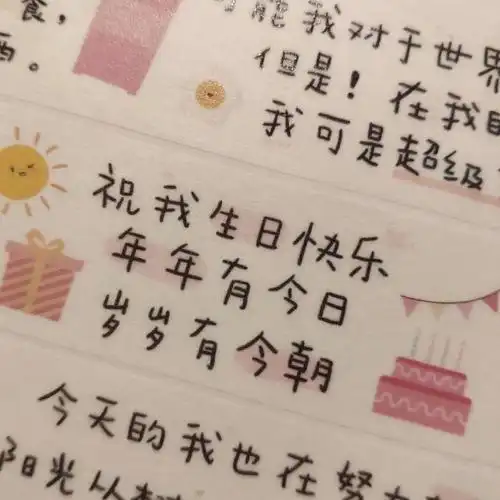 食，
酒。
能我对于世界
但是！在我
我可是超级
祝我生日快乐
年年有今日
岁岁有今朝
今天的我也在努
阳光从